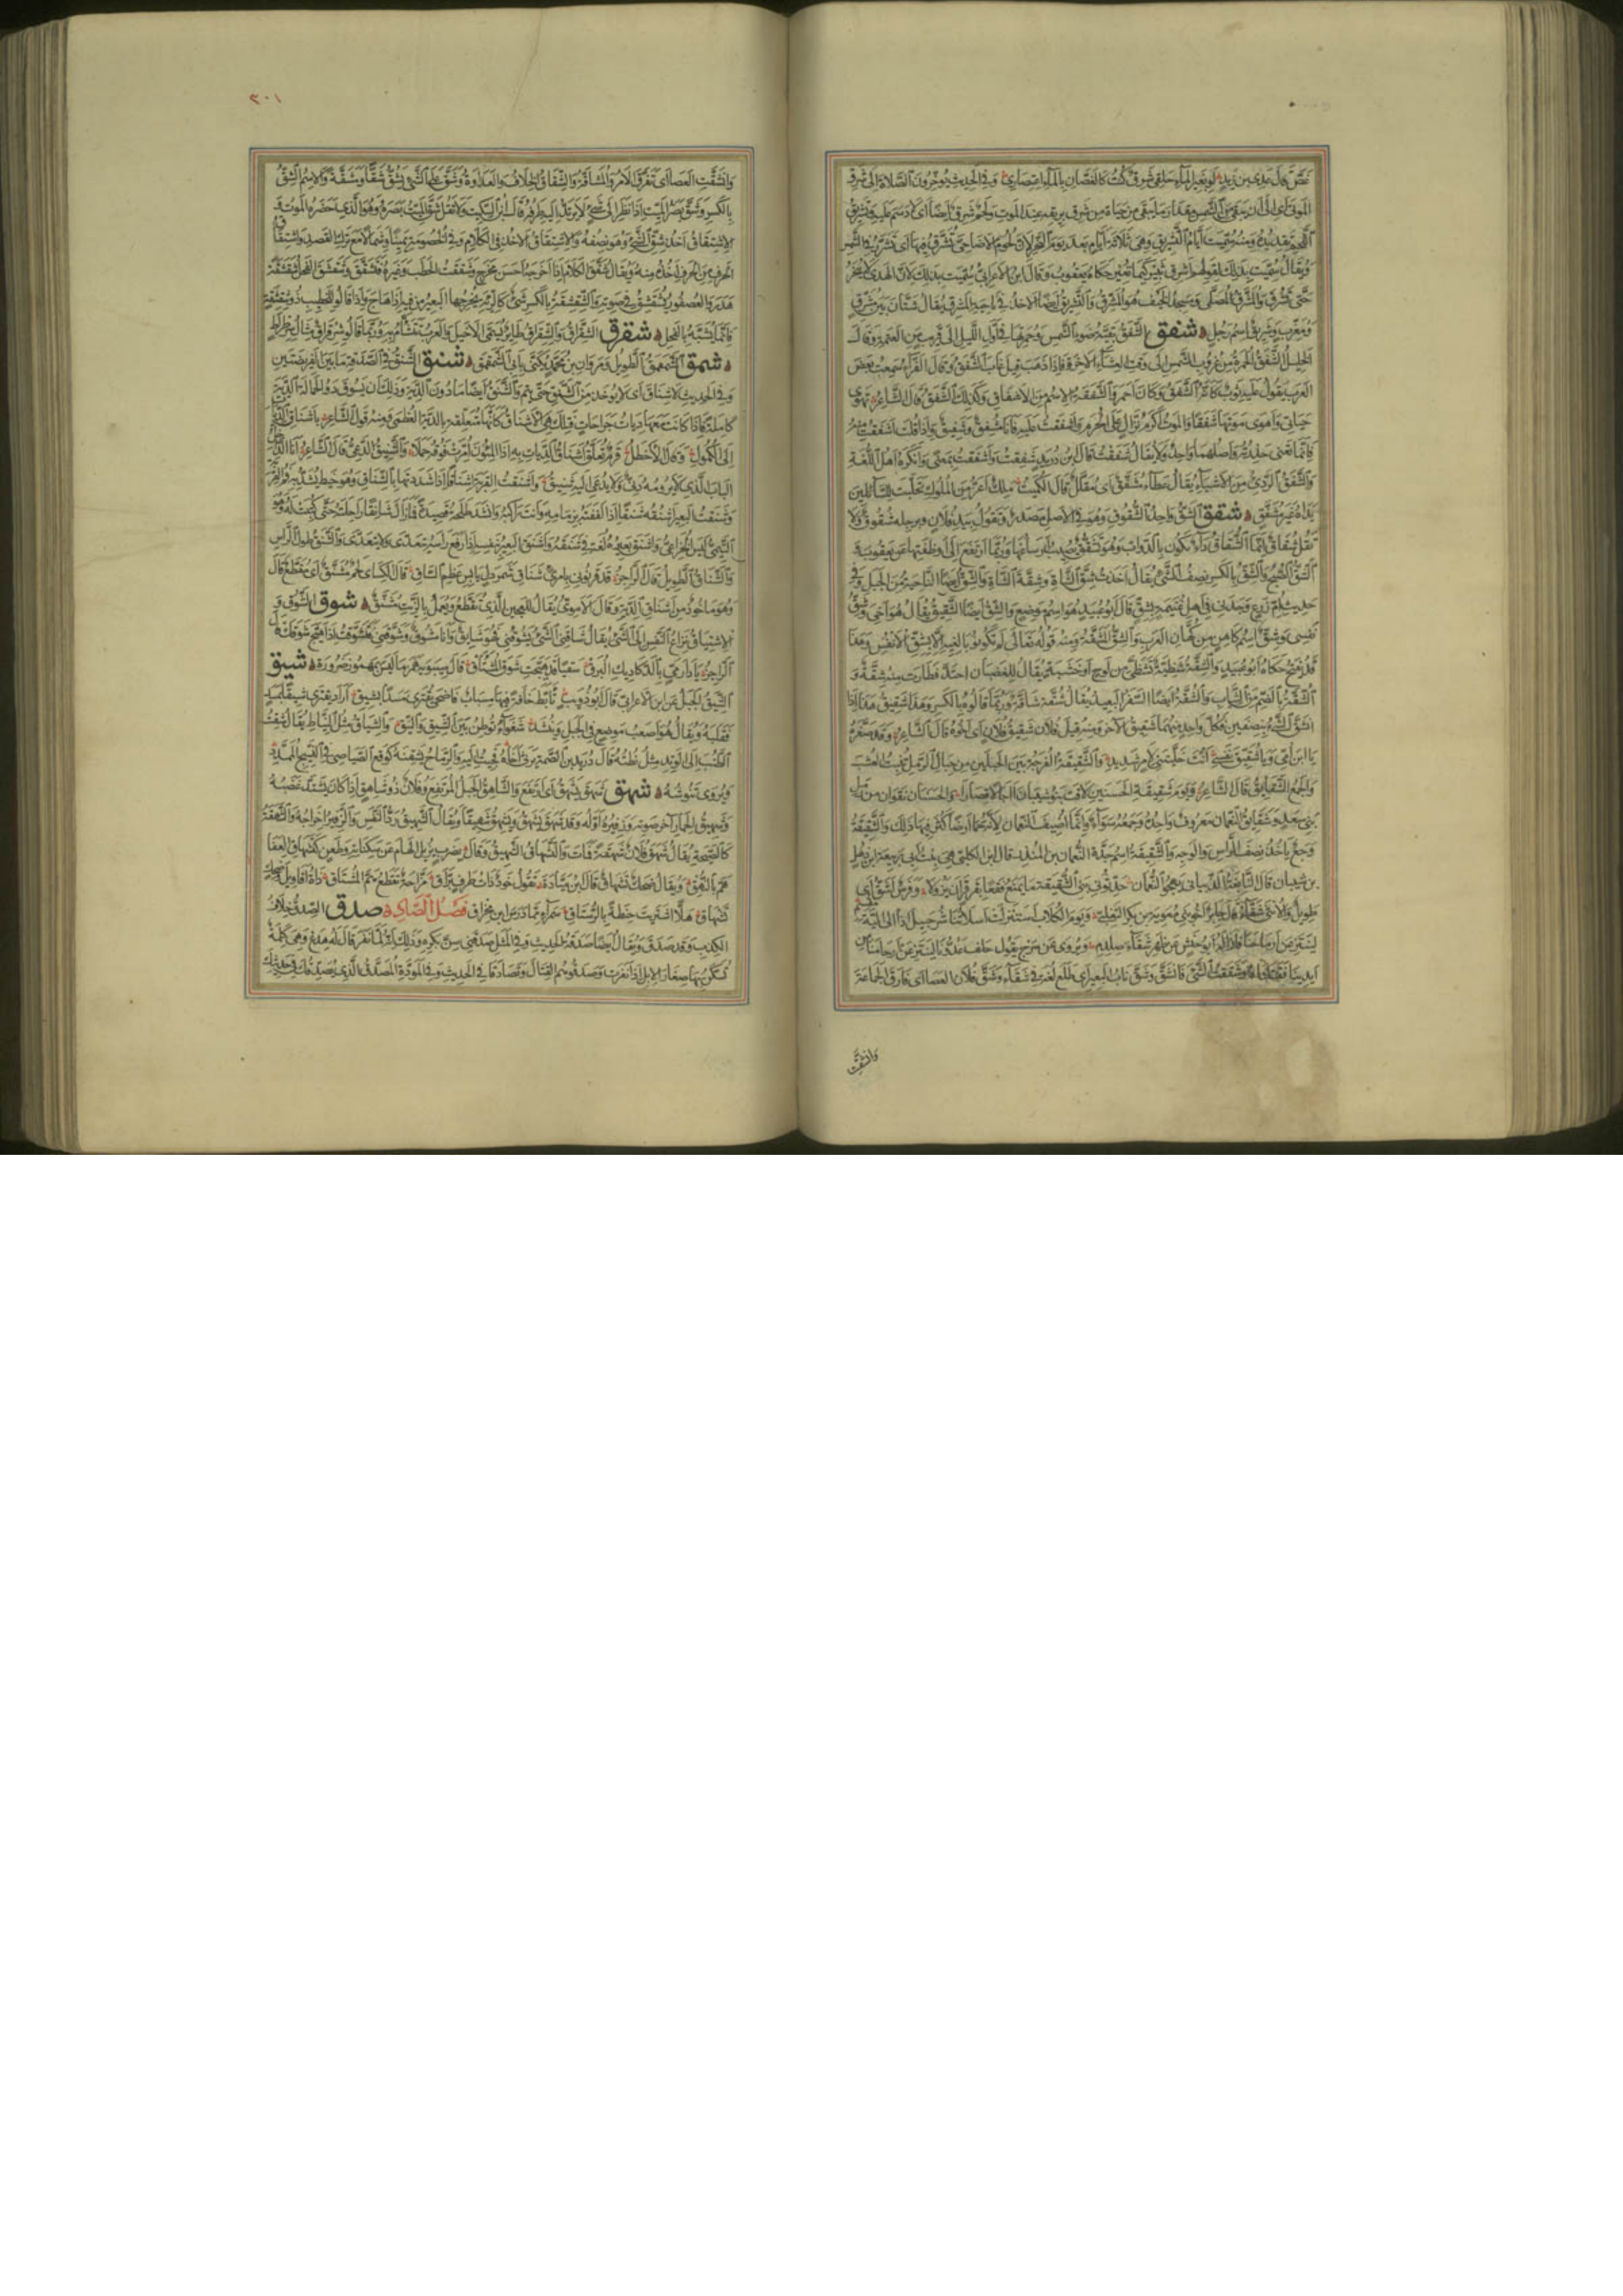 غصّ قال عدي بن زيد لو بغير الماء حلقي شرق كنت كالغصان بالماء اعتصاري وفي الحديث يؤخرون الصلاة الى شرق
الموتى اى الى ان يبقى من الشمس مقدار ما يبقى من حياة من شرق بريقه عند الموت ولحم شرق ايضا اى لا دسم عليه وتشريق
اللحم تقديده ومنه سميت ايام التشريق وهى ثلاثة ايام بعد يوم النحر لان لحوم الاضاحى تشرق فيها اى تشرر فى الشمس
ويقال سميت بذلك لقولهم اشرق ثبير كيما نغير حكاه يعقوب وقال ابن الاعرابى سميت بذلك لان الهدى لا ينحر
حتى تشرق والمشرق المصلى ومسجد الخيف هو المشرق والتشريق ايضا الاخذ فى ناحية المشرق يقال شتان بين مشرق
ومغرب وشريق اسم رجل شفق الشفق بقية ضوء الشمس وحمرتها فى اول الليل الى قريب من العتمة وقال
الخليل الشفق الحمرة من غروب الشمس الى وقت العشاء الاخرة فاذا ذهب قيل غاب الشفق وقال الفراء سمعت بعض
العرب يقول عليه ثوب كانه الشفق وكان احمر والشفقة الاسم من الاشفاق وكذلك الشفق قال الشاعر تهوى
حياتى واهوى موتها شفقا والموت اكرم نزال على الحرم واشفقت عليه فانا مشفق وشفيق واذا قلت اشفقت منه
فانما تعنى حذرته واصلهما واحد ولا يقال شفقت قال ابن دريد شفقت واشفقت بمعنى وانكره اهل اللغة
والشفق الردئ من الاشياء يقال عطاء مشفق اى مقلل قال الكميت ملك اغر من الملوك تحلبت للسائلين
يداه غير مشفق شقق الشق واحد الشقوق وهو فى الاصل مصدر وتقول بيد فلان وبرجله شقوق ولا
تقل شقاق وانما الشقاق داء يكون بالدواب وهو تشقق يصيب ارساغها وربما ارتفع الى اوظفتها عن يعقوب
الشق الصبح والشق بالكسر نصف الشئ يقال اخذت شق الشاة وشقة الشاة والشق ايضا الناحية من الجبل وفى
حديث ام زرع وجدنى فى اهل غنيمة بشق قال ابو عبيد هو اسم موضع والشق ايضا الشقيق يقال هو اخى وشق
نفسى وشق اسم كاهن من كهان العرب والشق المشقة ومنه قوله تعالى لم تكونوا بالغيه الا بشق الانفس وهذا
قد يفتح حكاه ابو عبيد والشقة شظية تشظى من لوح او خشبة يقال للغضبان احتد فطارت منه شقة و
الشقة بالضم من الثياب والشقة ايضا السفر البعيد يقال شقة شاقة وربما قالوه بالكسر وهذا شقيق هذا اذا
انشق الشئ بنصفين فكل واحد منهما شقيق الاخر ومنه قيل فلان شقيق فلان اى اخوه قال الشاعر وقد صغره
يا ابن امى ويا شقيق نفسى انت خليتنى لامر شديد والشقيقة الفرجة بين الحبلين من حبال الرمل تنبت العشب
والجمع الشقايق قال الشاعر ويوم شقيقة الحسنين لاقت بنو شيبان اجالا قصارا والحسنان نقوان من رمل
بنى سعد وشقايق النعمان معروف واحده وجمعه سواء وانما اضيف الى النعمان لانه حمى ارضا كثر فيها ذلك والشقيقة
وجع ياخذ نصف الراس والوجه والشقيقة اسم جدة النعمان بن المنذر قال ابن الكلبى هى بنت ابى ربيعة ابن ذهل
بن شيبان قال النابغة الذبيانى يهجو النعمان حدثونى بنى الشقيقة ما يمنع فقعا بقرقر ان يزولا وفرس اشق اى
طويل والانثى شقاء قال جابر اخو بنى معوية بن بكر التغلبى ويوم الكلاب استنزلت اسلاتنا شرحبيل اذ الى الية
لينتزعن ارماحنا فازاله ابو حنش عن ظهر شقاء صلدم ويروى عن سرج يقول حلف عدونا لينتزعن ارماحنا من
ايدينا فقتلناه وشققت الشئ فانشق وشق ناب البعير اى طلع لغة فى شقاء وشق فلان العصا اى فارق الجماعة
وانشقت
٣٠١
وانشقت العصا اى تفرق الامر والمشاقة والشقاق الخلاف والعداوة وشق على الشئ يشق شقا ومشقة والاسم الشق
بالكسر وشق بصر الميت اذا نظر الى شئ لا يرتد اليه طرفه قال ابن السكيت ولا تقل شق الميت بصره وهو الذى حضره الموت و
الاشتقاق اخذ شق الشئ وهو نصفه والاشتقاق الاخذ فى الكلام وفى الخصومة يمينا وشمالا مع ترك القصد واشتقاق
الحرف من الحرف اخذه منه ويقال شقق الكلام اذا اخرجه احسن مخرج وشققت الحطب وغيره فتشقق وشقشق الفحل شقشقة
هدر والعصفور يشقشق فى صوته والشقشقة بالكسر شئ كالرئة يخرجها البعير من فيه اذا هاج واذا قالوا للخطيب ذو شقشقة
فانما يشبه بالفحل شقرق الشقراق والشقراق طاير يسمى الاخيل والعرب تتشأم به وربما قالوا شرقراق مثال طرماح
شمق الشمقمق الطويل ومروان بن محمد يكنى بابى الشمقمق شنق الشنق فى الصدقة ما بين الفريضتين
وفى الحديث لا شناق اى لا يؤخذ من الشنق حتى يتم والشنق ايضا ما دون الدية وذلك ان يسوق ذو الحمالة الدية
كاملة فاذا كانت معها ديات جراحات فتلك هى الاشناق كانها متعلقة بالدية العظمى ومنه قول الشاعر باشناق الديات
الى الكمول وقال الاخطل قرم تعلق اشناق الديات به اذا المئون امرت فوقه حملا والشنيق الدعى قال الشاعر انا الداخل
الباب الذى لا يرومه دنى ولا يدعى اليه شنيق واشنقت القربة اشناقا اذا شددتها بالشناق وهو خيط يشد به فم القربة
وشنقت البعير اشنقه شنقا اذا كففته بزمامه وانت راكبه وانشد طلحة قصيدة فما زال شانقا راحلته حتى كتبت له وهو
التيمى ليس الخزاعى واشنق بعيره لغة فى شنقه واشنق البعير بنفسه اذا رفع راسه يتعدى ولا يتعدى والشنق طول الراس
والشناق الطويل قال الراجز قد قرنونى بامرئ شناق شمردل يابس عظم الساق قال الكساى لحم مشنق اى مقطع قال
وهو ماخوذ من اشناق الدية وقال الاموى يقال للعجين الذى يقطع ويعمل بالزيت مشنق شوق الشوق و
الاشتياق نزاع النفس الى الشئ يقال شاقنى الشئ يشوقنى فهو شايق وانا مشوق وشوقنى فتشوقت اذا هيج شوقك
الراجز يا دار مى بالدكاديك البرق سقيا فقد هيجت شوق المشتاق قال سيبويه همز ما ليس بمهموز ضرورة شيق
الشيق الجبل عن ابن الاعرابى قال ابو ذويب تأبط خافة فيها مساب فاضحى يقترى مسدا بشيق اراد يقترى شيقا بمسد
فقلبه ويقال هو اصعب موضع فى الجبل وينشد شغواء توطن بين الشيق والنيق والشياق مثل النياط يقال شقت
الطنب الى الوتد مثل نطته قال دريد بن الصمة يرثى اخاه فجئت اليه والرماح يشقنه كوقع الصياصى فى النسيج الممدد
ويروى تنوشه شهق شهق يشهق اى ارتفع والشاهق الجبل المرتفع وفلان ذو شاهق اذا كان يشتد غضبه
وشهيق الحمار آخر صوته وزفيره اوله وقد شهق يشهق ويشهق شهيقا ويقال الشهيق رد النفس والزفير اخراجه والشهقة
كالصيحة يقال شهق فلان شهقة فمات والتشهاق الشهيق وقال بضرب يزيل الهام عن سكناته وطعن كتشهاق العفا
هم بالنهق ويقال ضحك تشهاق قال ابن ميادة تقول خود ذات طرف براق مزاحة تقطع هم المشتاق ذات اقاويل وضحك
تشهاق هلا اشتريت حنطة بالرستاق سمراء مما درس ابن مخراق فصل الصاد صدق الصدق خلاف
الكذب وقد صدق ويقال ايضا صدقه الحديث وفى المثل صدقنى سن بكره وذلك انه لما نفر قال له هدع وهى كلمة
تسكن بها صغار الابل اذا نفرت وصدقوهم القتال وتصادقا فى الحديث وفى المودة المصدق الذى يصدقك فى حديثك